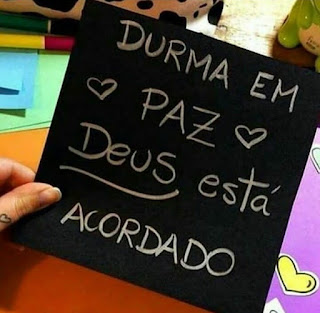 DURMA EM
PAZ
DEUS está
ACORDADO